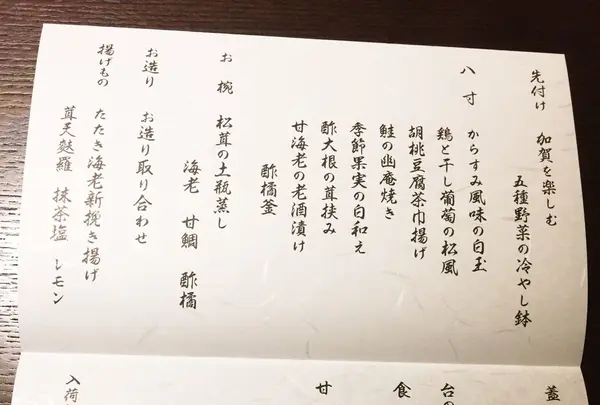 先付け 加賀を楽しむ
五種野菜の冷やし鉢
八寸 からすみ風味の白玉
鶏と干し葡萄の松風
胡桃豆腐茶巾揚げ
鮭の幽庵焼き
季節果実の白和え
酢大根の茸挟み
甘海老の老酒漬け
酢橘釜
お椀 松茸の土瓶蒸し
海老 甘鯛 酢橘
お造り お造り取り合わせ
揚げもの たたき海老新挽き揚げ
茸天麩羅 抹茶塩 レモン
蓋
台の
食
甘
入荷